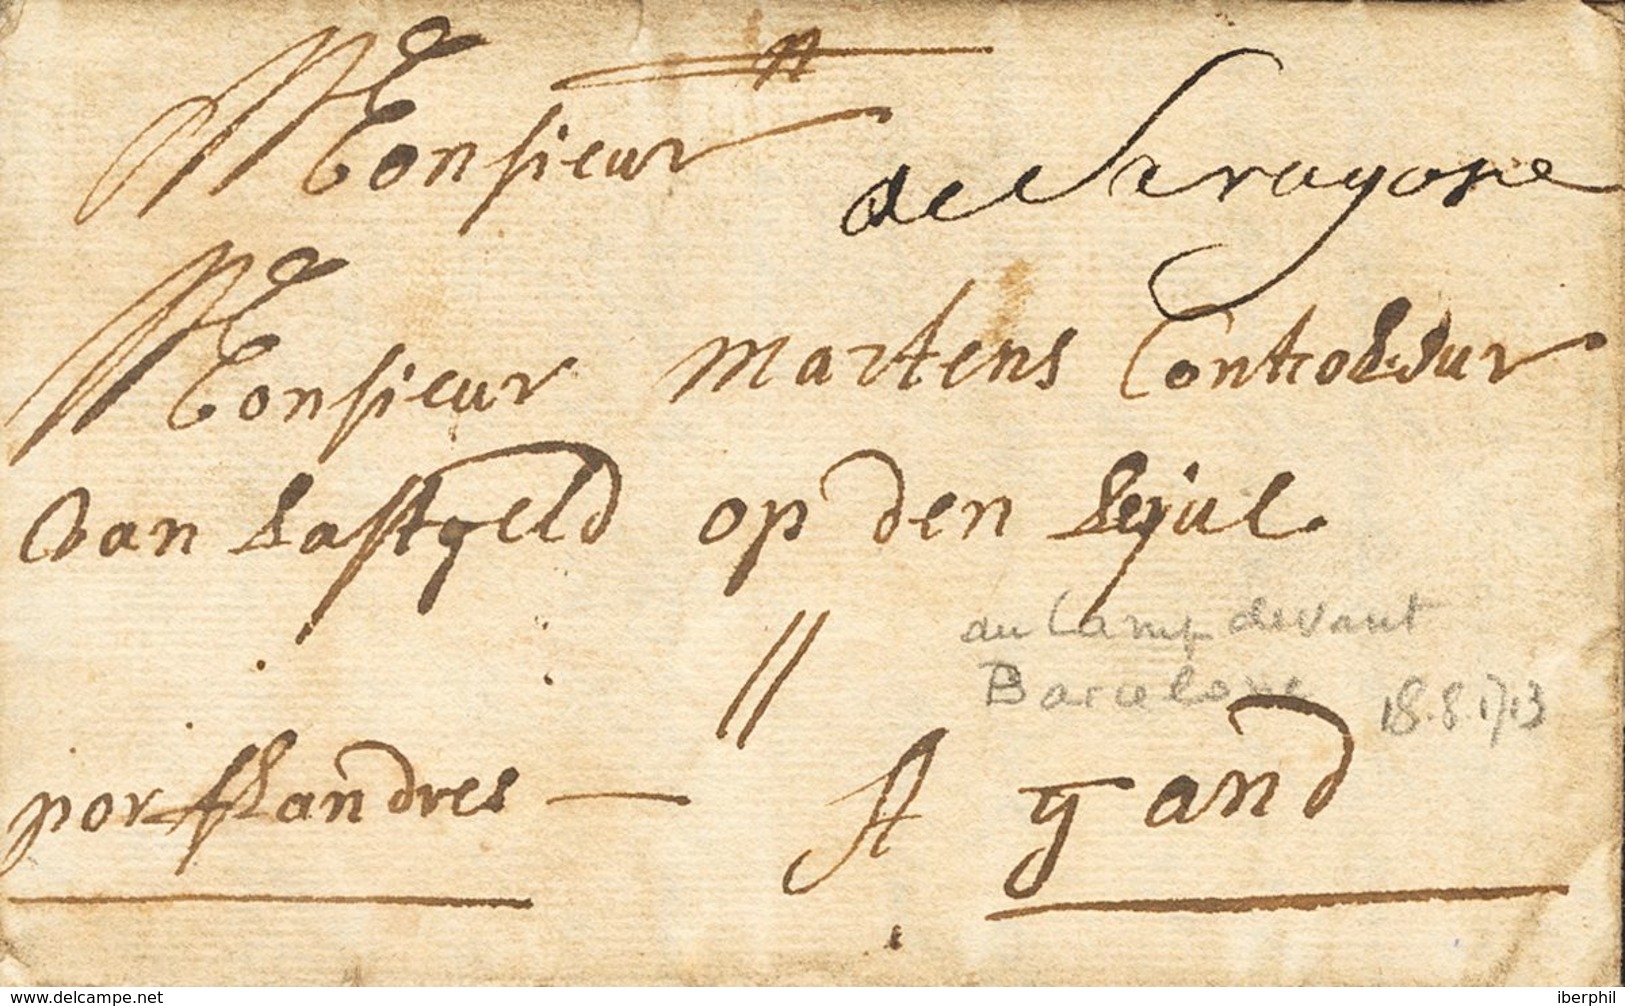 Monsieur
de Saragose
Monsieur Martens Controlleur
van Lastgeld op den
au Camp devant
Barcelone 18.8.1713
por fflandres — A gand
www.delcampe.net
iberphil